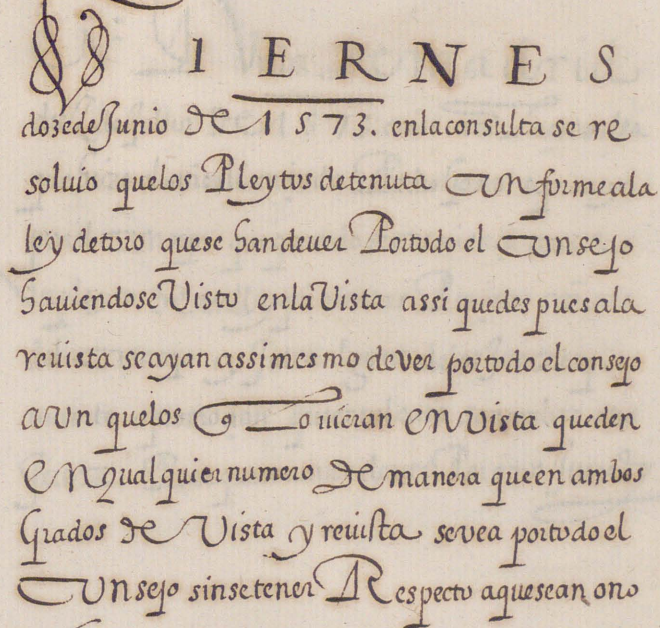 VIERNES
doze de Junio de 1573. en la consulta se re
soluio que los Pleytos de tenuta conforme a la
ley de toro que se han de uer Por todo el Consejo
hauiendose Visto en la Vista assi que despues a la
reuista se ayan assi mesmo de ver por todo el consejo
aun que los q Lo uieran en vista queden
en qualquier numero de manera que en ambos
Grados de Vista y reuista se vea por todo el
Consejo sin se tener Respecto a que sean o no